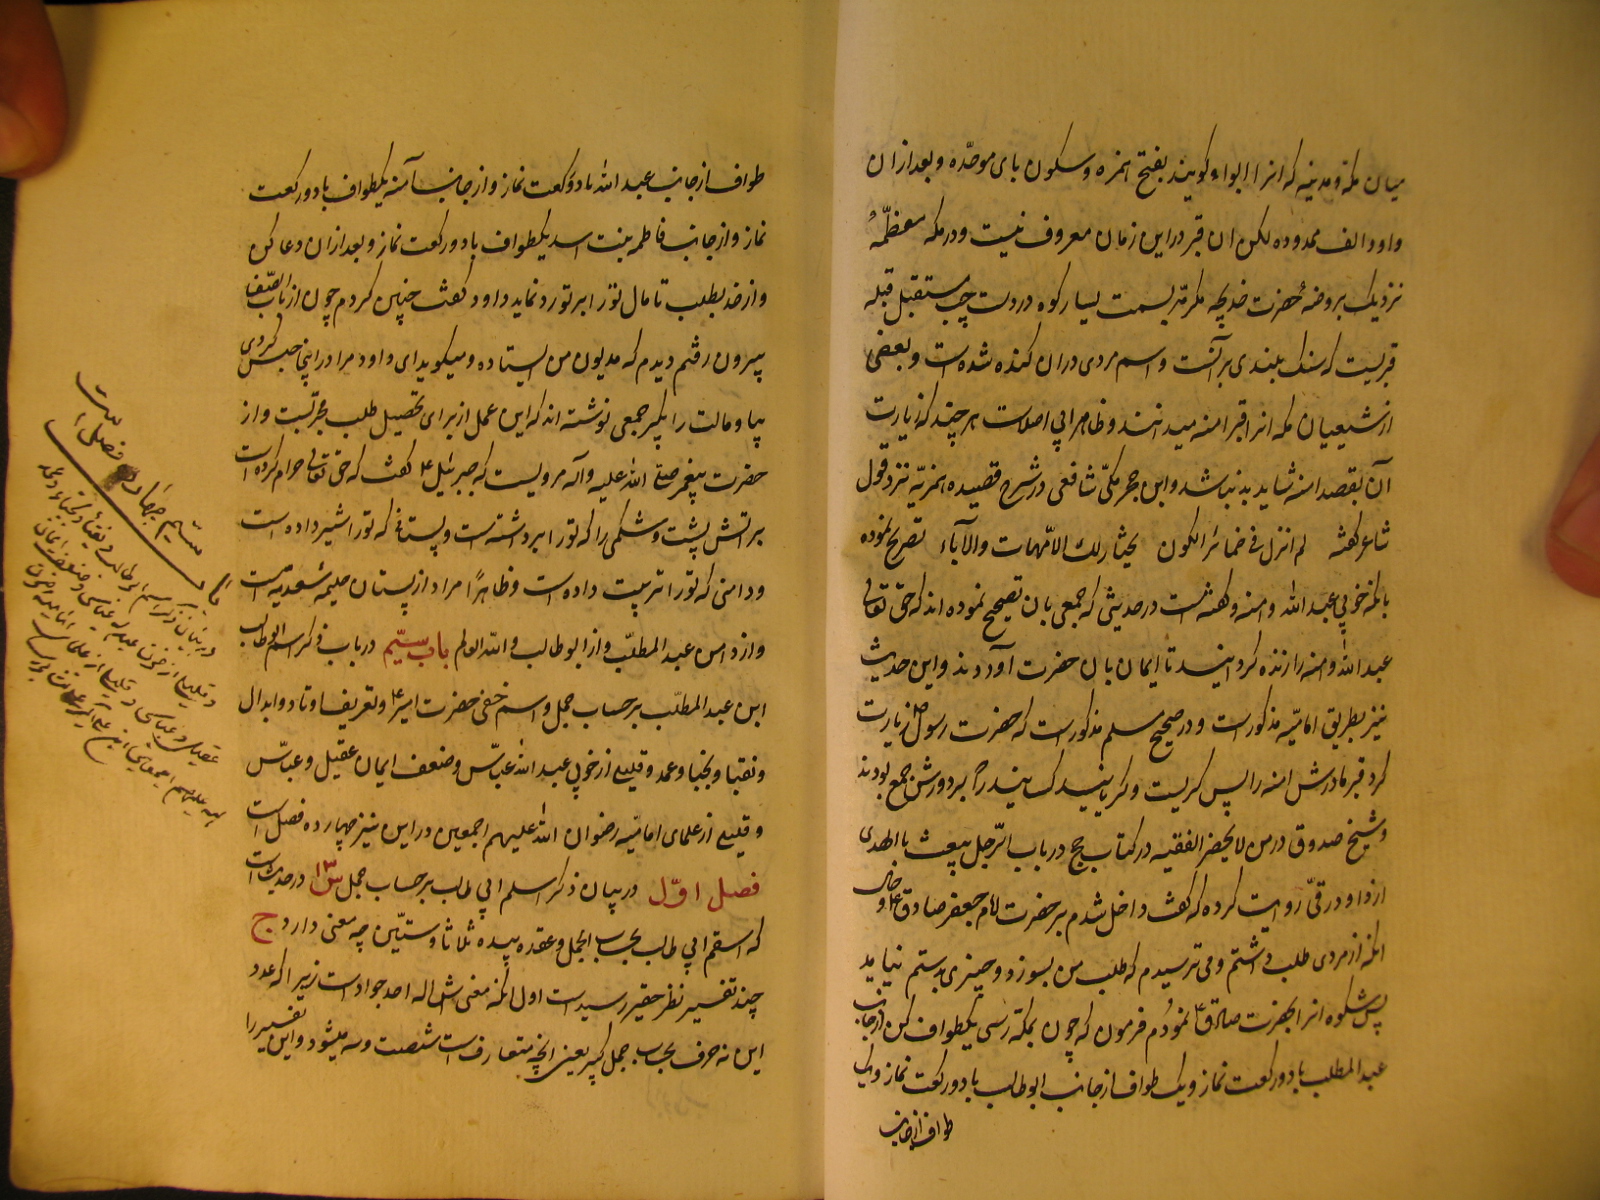 میان مکه و مدینه که انرا ابواء کویند بفتح همزه و سکون بای موحّده و بعد از ان
واو و الف ممدوده لکن ان قبر در این زمان معروف نیست و در مکه معظّمه
نزدیک بروضه حضرت خدیجه مکرمه بسمت یسار کوه در دست چپ مستقبل قبله
قبریست که سنک بلندی بر آنست و اسم مردی دران کنده شده است و بعضی
از شیعیان مکه انرا قبر امنه میدانند و ظاهرا بی اصلست هر چند که زیارت
آن بقصد امنه شاید بد نباشد و ابن حجر مکّی شافعی در شرح قصیده همزیّه نزد قول
شاعر کفته لم انزل فی ضمائر الکون یختار لك الامّهات والآباء تصریح نموده
بانکه خوبی عبد الله و امنه و کفته است در حدیثی که جمعی بان تصحیح نموده اند که حق تعالی
عبد الله و امنه را زنده کردانید تا ایمان بان حضرت آوردند و این حدیث
نیز بطریق امامیّه مذکور است و در صحیح مسلم مذکور است که حضرت رسول ص زیارت
کرد قبر مادرش امنه را پس کریست و کریانید کسانیرا که بر دورش جمع بودند
و شیخ صدوق در من لا یحضر الفقیه در کتاب حج در باب الرّجل یبعث بالهدی
از داود رقّی روایت کرده که کفت داخل شدم بر حضرت امام جعفر صادق ع و حال
انکه از مردی طلب داشتم و می ترسیدم که طلب من بسوزد و چیزی بدستم نیاید
پس شکوه انرا بحضرت صادق ع نمودم فرمودن که چون بمکه رسی یکطواف کن از جانب
عبد المطلب با دو رکعت نماز و یک طواف از جانب ابو طالب با دو رکعت نماز و یک
طواف از جانب
طواف از جانب عبد الله با دو رکعت نماز و از جانب آمنه یکطواف با دو رکعت
نماز و از جانب فاطمه بنت اسد یکطواف با دو رکعت نماز و بعد از ان دعا کن
و از خدا بطلب تا مال تو را بر تو رد نماید داود کفت چنین کردم چون از باب الصّفا
بیرون رفتم دیدم که مدیون من ایستاده و میکوید ای داود مرا در اینجا حبس کردی
بیا و مالت را بکیر جمعی نوشته اند که این عمل از برای تحصیل طلب مجرّبست و از
حضرت پیغمبر صلّی الله علیه و آله مرویست که جبرئیل ع کفت که حق تعالی حرام کرده است
بر آتش پشت و شکمی را که تو را برداشته است و پستانی که تو را شیر داده است
و دامنی که تو را تربیت داده است و ظاهرًا مراد از پستان حلیمه سعدیه است
و از دامن عبد المطلّب و از ابو طالب و الله العالم باب سیّم در باب ذکر اسم ابو طالب
ابن عبد المطلّب بر حساب جمل و اسم خفی حضرت امیر ع و تعریف اوتاد و ابدال
و نقبا و نجبا و عمد و قلیلی از خوبی عبد الله عبّاس و ضعف ایمان عقیل و عبّاس
و قلیلی از علمای امامیّه رضوان الله علیهم اجمعین در این نیز چهارده فصل است
فصل اوّل در بیان ذکر اسلم ابی طالب بر حساب جمل س ۱۳ در حدیث است
که اسلم ابی طالب بحساب الجمل و عقد بیده ثلاثا و ستّین چه معنی دارد ج
چند تفسیر نظر حقیر رسیده است اول انکه معنی اش اله احد جواد است زیرا که عدد
این نه حرف بحساب جمل کبیر یعنی انچه متعارف است شصت و سه میشود و این تفسیر را
باب سیّم چهارده فصل است